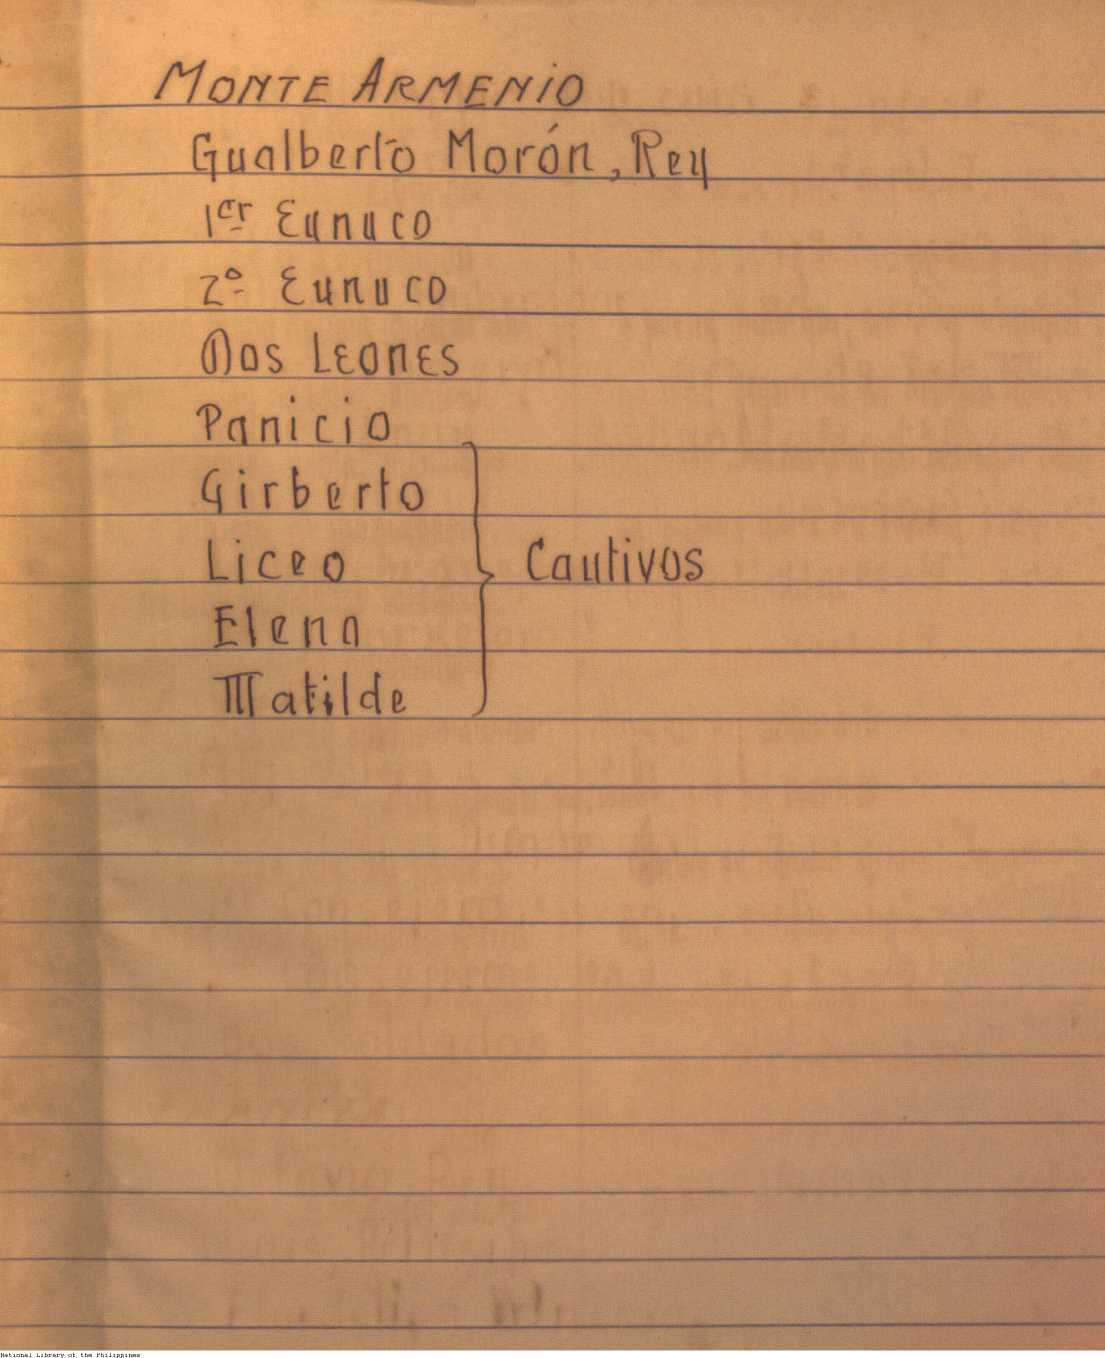 MONTE ARMENIO
Gualberto Morón, Rey
1er Eunuco
2º Eunuco
Dos LEONES
Panicio
Girberto
Liceo
Cautivos
Elena
Matilde
National Library of the Philippines